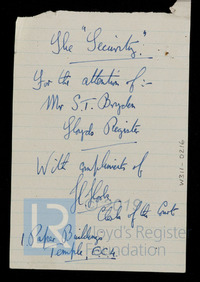 The "Security."
For the attention of :-
Mr S.T. Bryden
Lloyds Register
With compliments of
Clerk of the Court
1 Paper Buildings
Temple E.C.4
W311-0216
LR Lloyd's Register
Foundation